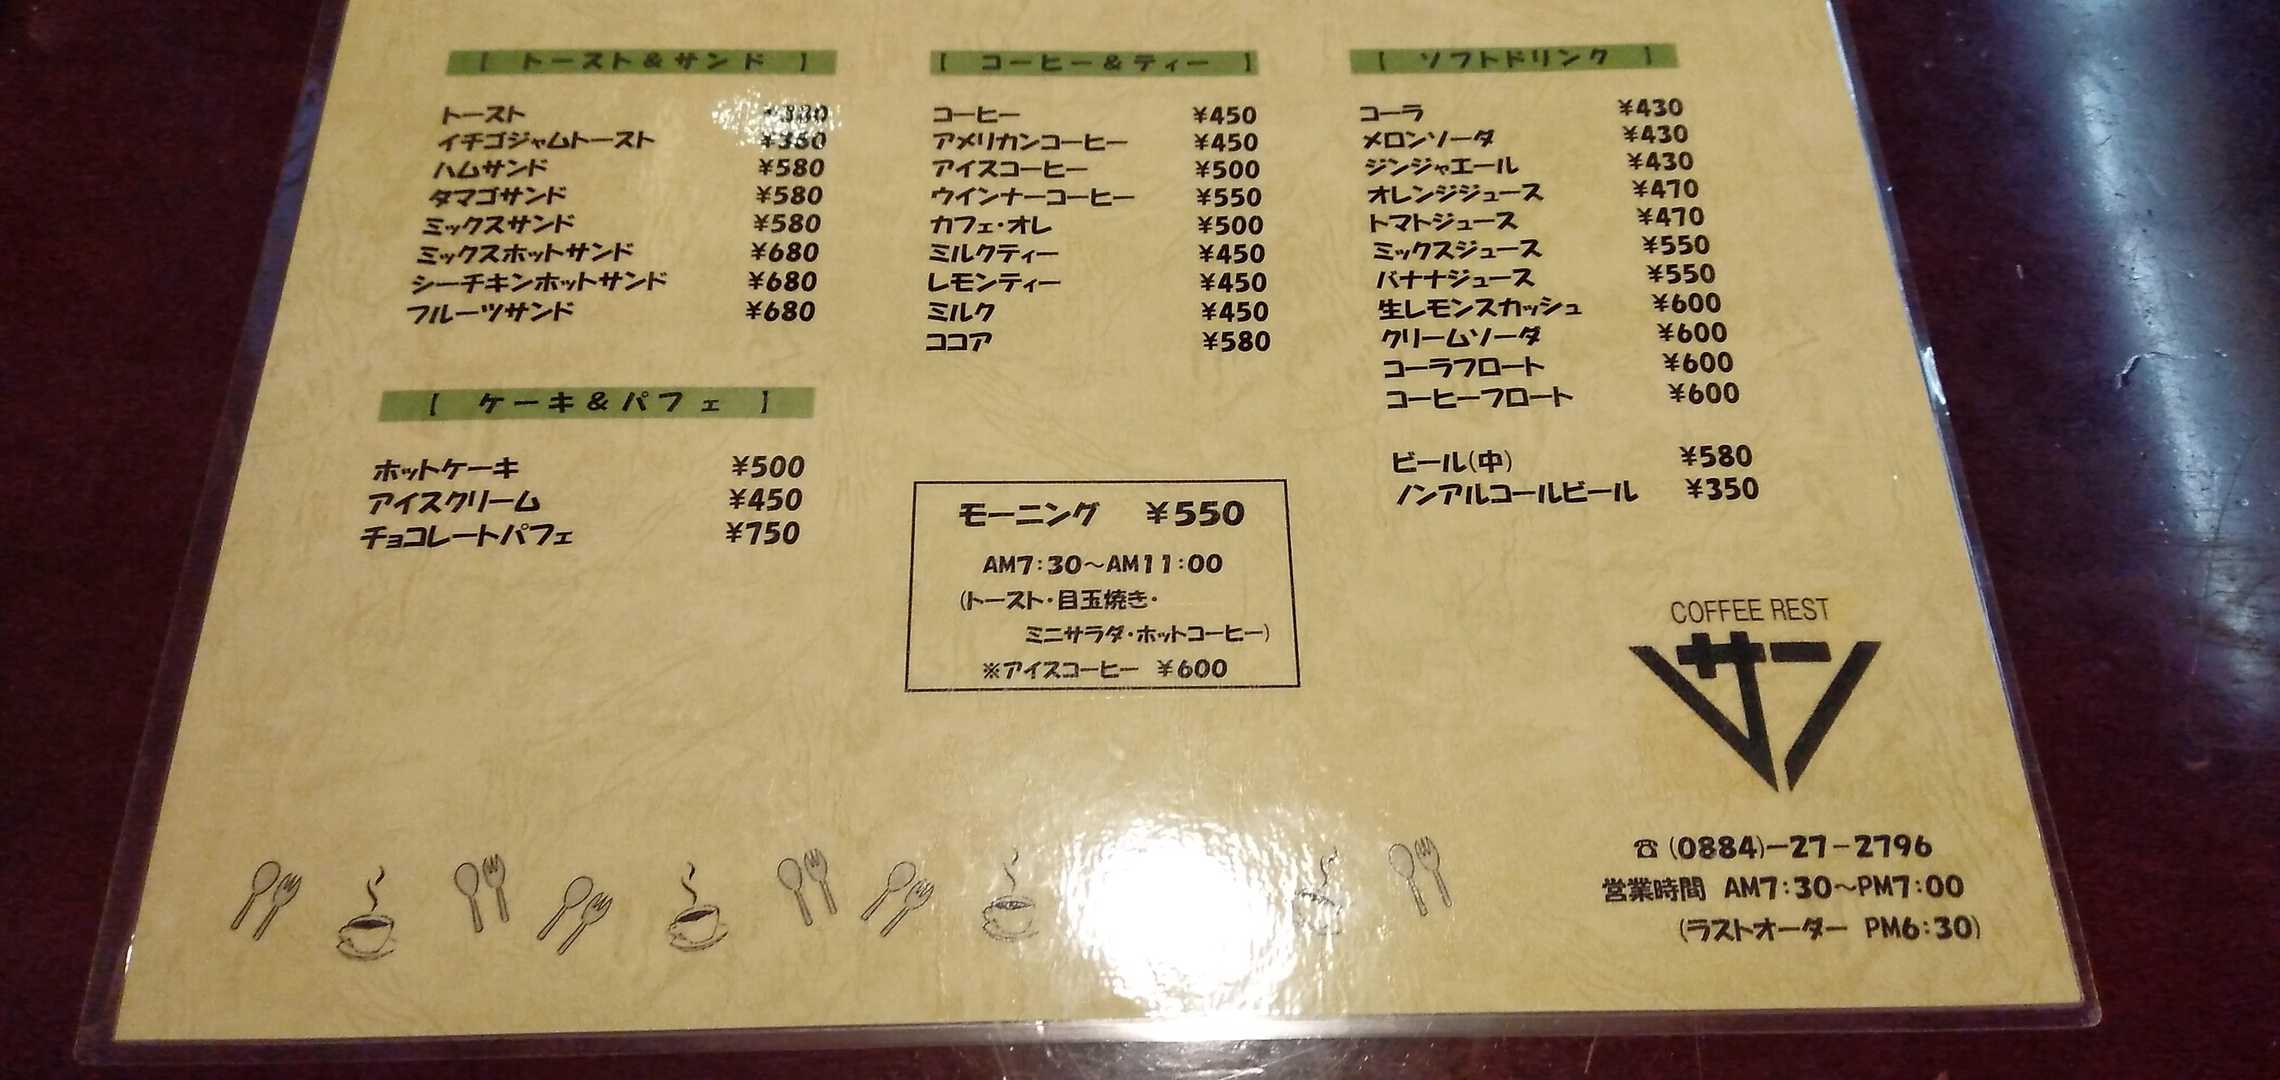 【 トースト&サンド 】
トースト
イチゴジャムトースト
ハムサンド ¥580
タマゴサンド ¥580
ミックスサンド ¥580
ミックスホットサンド ¥680
シーチキンホットサンド ¥680
フルーツサンド ¥680
【 ケーキ&パフェ 】
ホットケーキ ¥500
アイスクリーム ¥450
チョコレートパフェ ¥750
【 コーヒー&ティー 】
コーヒー ¥450
アメリカンコーヒー ¥450
アイスコーヒー ¥500
ウインナーコーヒー ¥550
カフェ・オレ ¥500
ミルクティー ¥450
レモンティー ¥450
ミルク ¥450
ココア ¥580
モーニング ¥550
AM7:30~AM11:00
(トースト・目玉焼き・
ミニサラダ・ホットコーヒー)
※アイスコーヒー ¥600
【 ソフトドリンク 】
コーラ ¥430
メロンソーダ ¥430
ジンジャエール ¥430
オレンジジュース ¥470
トマトジュース ¥470
ミックスジュース ¥550
バナナジュース ¥550
生レモンスカッシュ ¥600
クリームソーダ ¥600
コーラフロート ¥600
コーヒーフロート ¥600
ビール(中) ¥580
ノンアルコールビール ¥350
COFFEE REST
サン
☎(0884)-27-2796
営業時間 AM7:30~PM7:00
(ラストオーダー PM6:30)